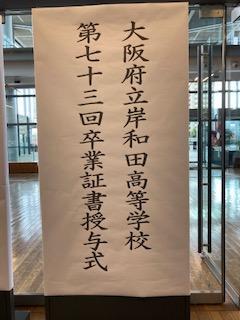 大阪府立岸和田高等学校
第七十三回卒業証書授与式